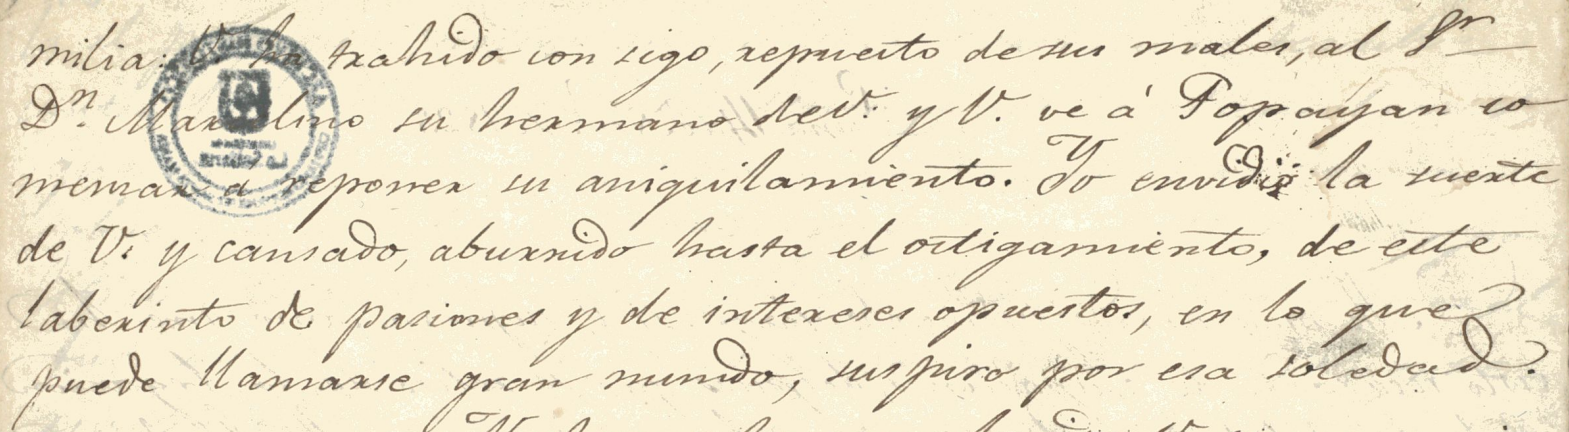 milia: V. ha trahido con sigo, repuesto de sus males, al Sr
Dn. Marcelino su hermano de V. y V. ve á Popayan co
menzar á reponer su aniquilamiento. Yo envidio la suerte
de V. y cansado, aburrido hasta el ostigamiento, de este
laberinto de pasiones y de intereses opuestos, en lo que
puede llamarse gran mundo, suspiro por esa soledad.